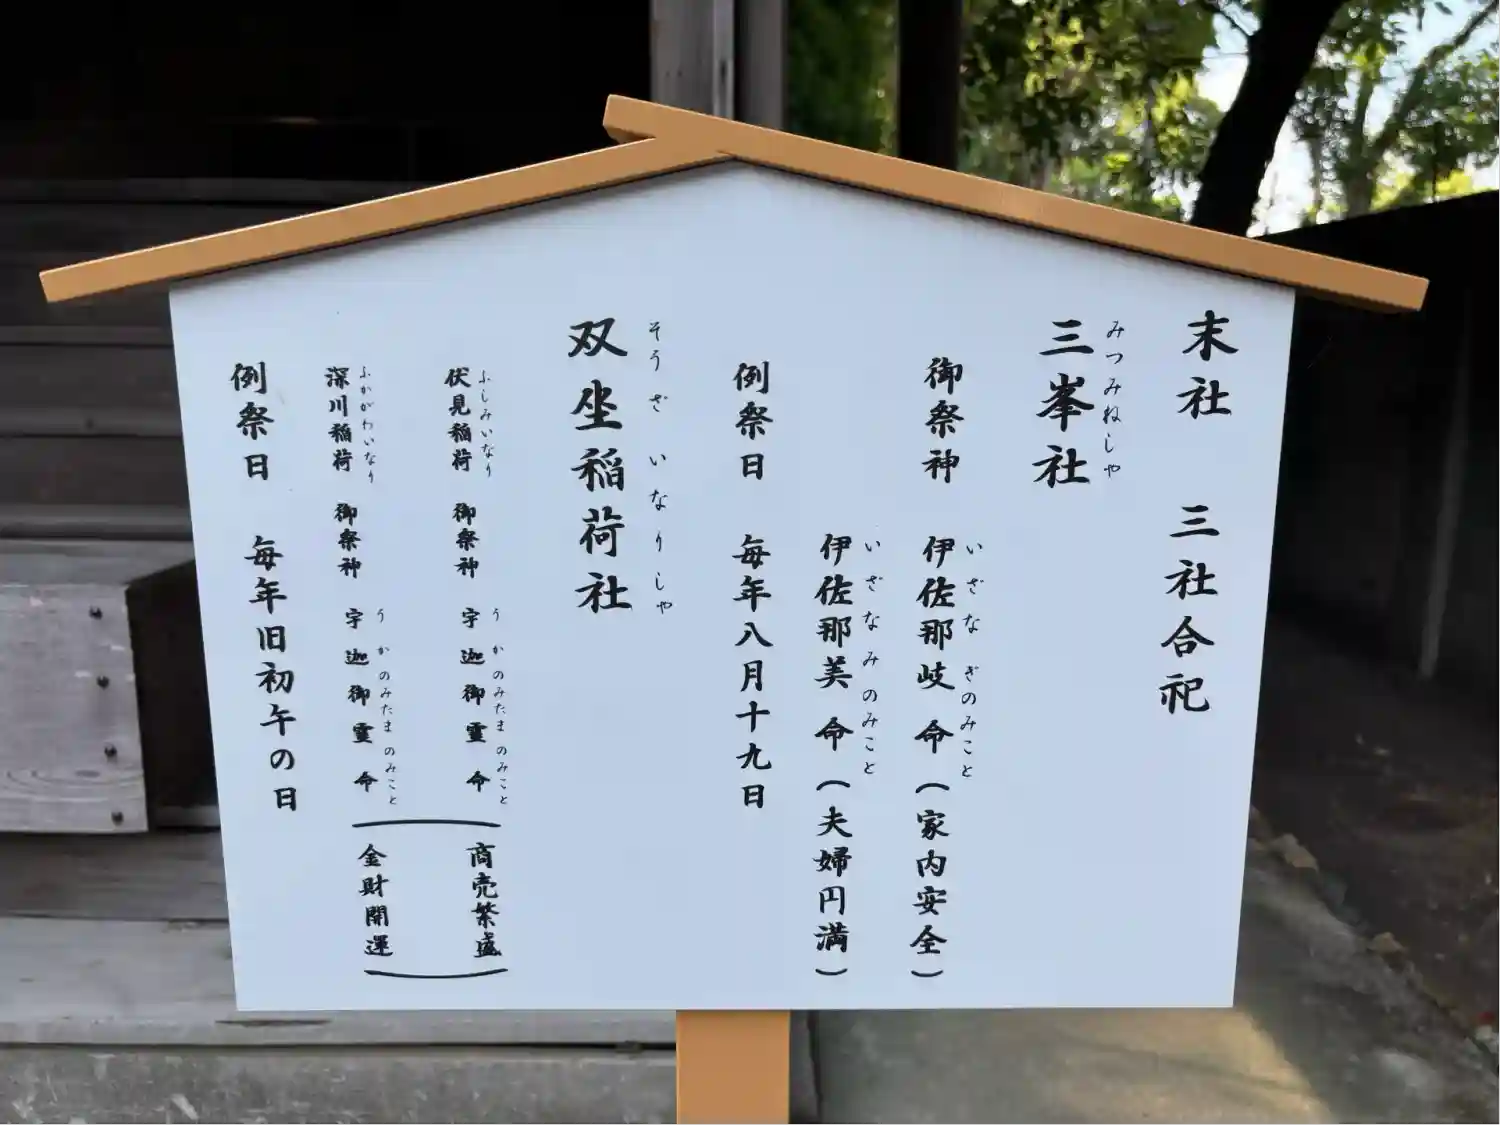 末社　三社合祀
みつみねしゃ
三峯社
いざなぎのみこと
御祭神　伊佐那岐命（家内安全）
いざなみのみこと
伊佐那美命（夫婦円満）
例祭日　毎年八月十九日
そうざいなりしゃ
双坐稲荷社
ふしみいなり　うかのみたまのみこと
伏見稲荷　御祭神　宇迦御霊命（商売繁盛
ふかがわいなり　うかのみたまのみこと
深川稲荷　御祭神　宇迦御霊命　金財開運）
例祭日　毎年旧初午の日